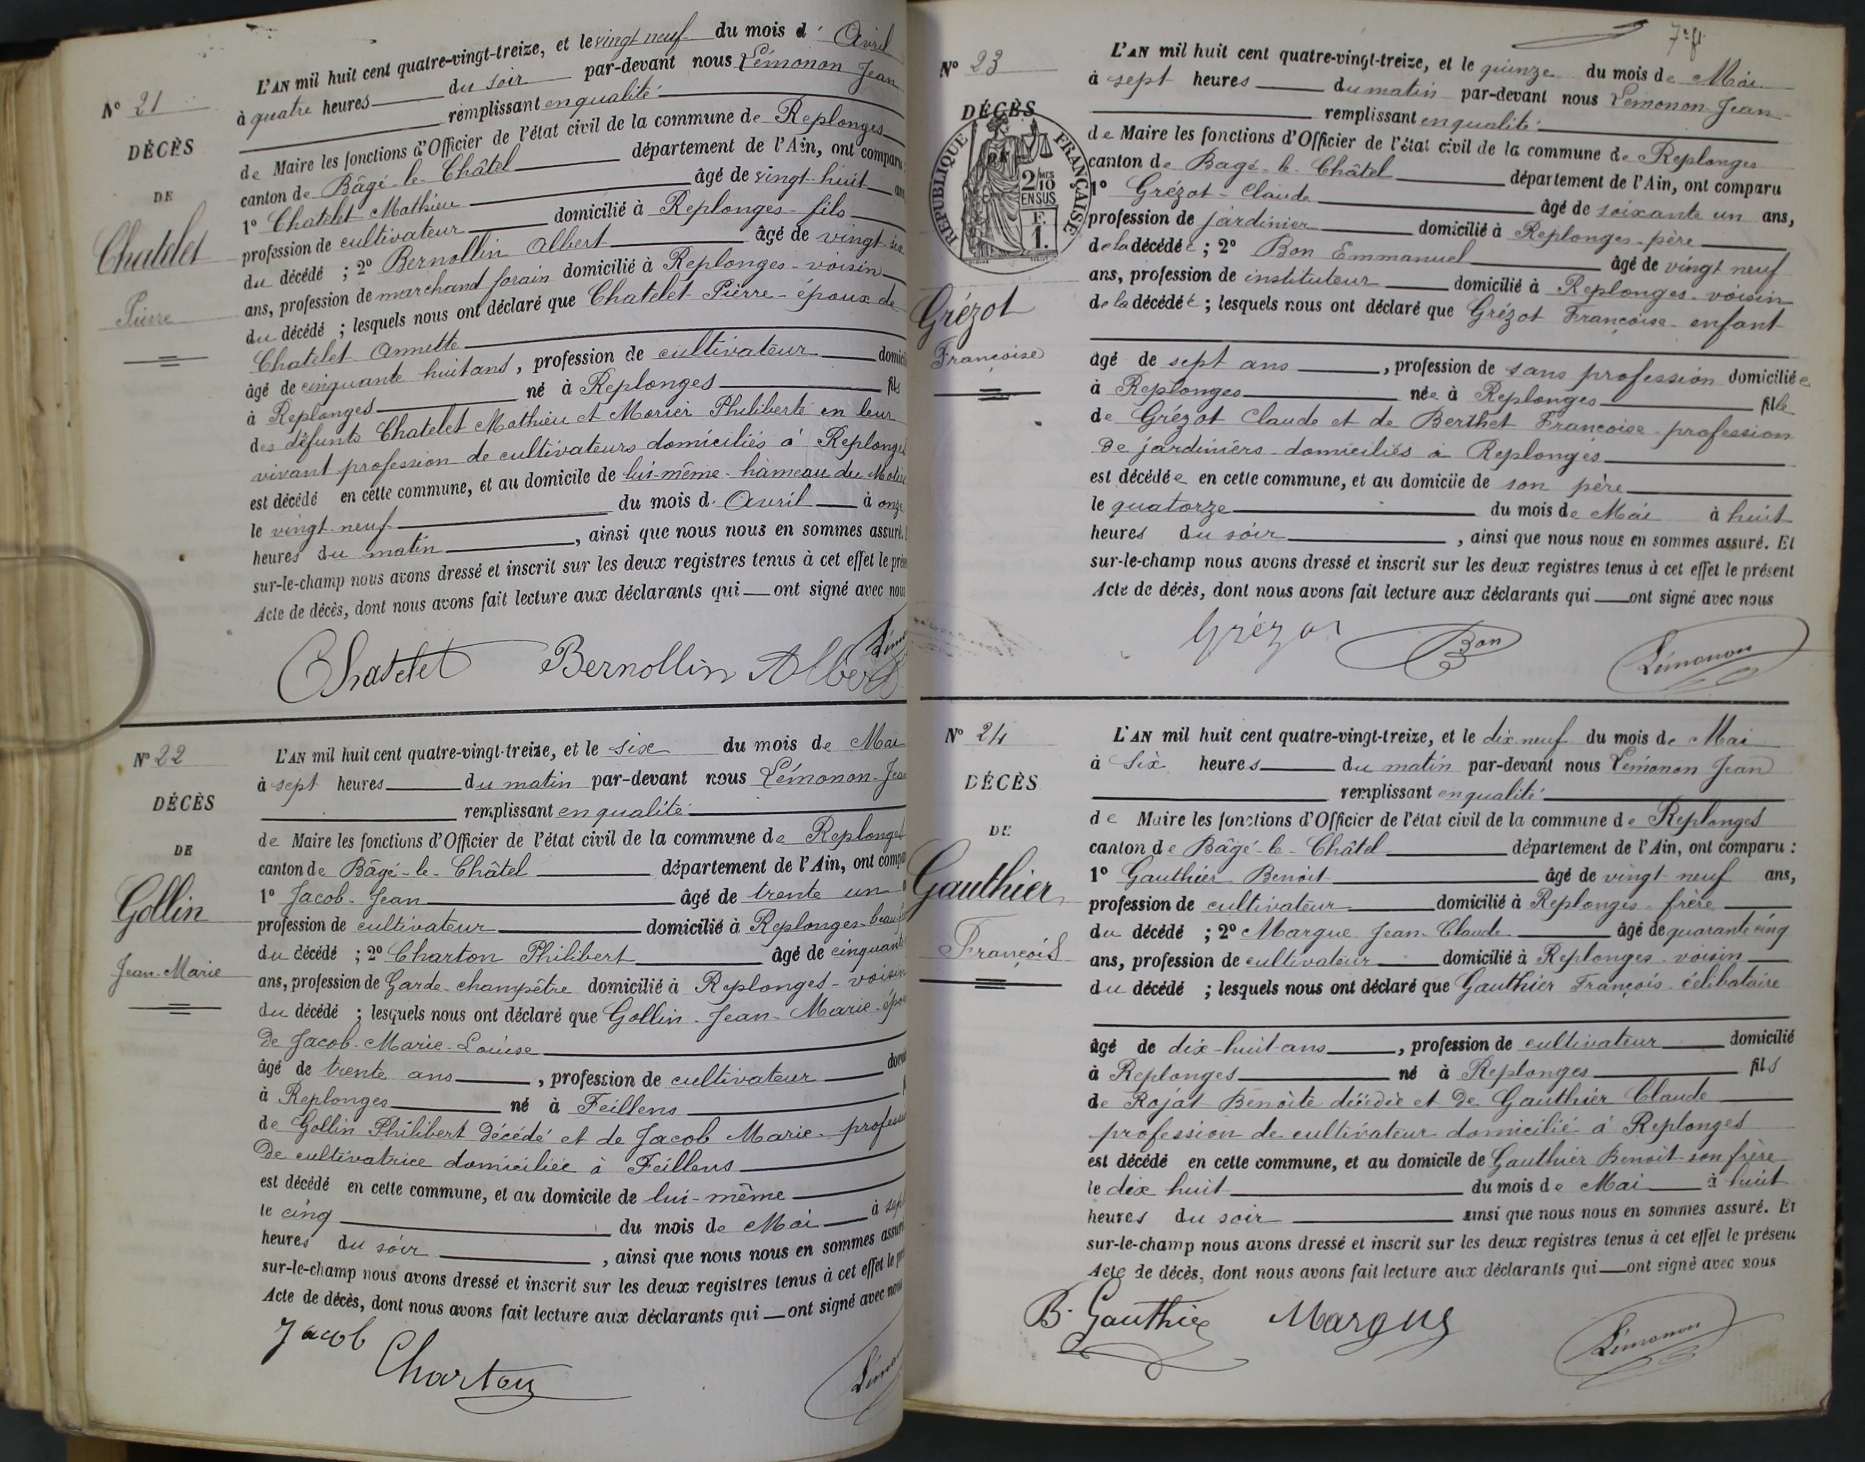 N° 21
DÉCÈS
DE
Chatelet
Pierre
L'AN mil huit cent quatre-vingt-treize, et le vingt neuf du mois d' Avril
à quatre heures du soir par-devant nous Lémonon Jean
remplissant en qualité
de Maire les fonctions d'Officier de l'état civil de la commune de Replonges
canton de Bâgé-le-Châtel département de l'Ain, ont comparu
1° Chatelet Mathieu âgé de vingt-huit ans
profession de cultivateur domicilié à Replonges - fils
du décédé ; 2° Bernollin Albert âgé de vingt-six
ans, profession de marchand forain domicilié à Replonges - voisin
du décédé ; lesquels nous ont déclaré que Chatelet Pierre - époux de
Chatelet Annette
âgé de cinquante huit ans, profession de cultivateur domici
à Replonges né à Replonges fils
des défunts Chatelet Mathieu et Morier Philiberte en leur
vivant profession de cultivateurs domiciliés à Replonges
est décédé en cette commune, et au domicile de lui-même - hameau du
le vingt-neuf du mois d' Avril à onze
heures du matin, ainsi que nous nous en sommes assuré.
sur-le-champ nous avons dressé et inscrit sur les deux registres tenus à cet effet le prése
Acte de décès, dont nous avons fait lecture aux déclarants qui — ont signé avec nous
Chatelet Bernollin Albert Lémo
N° 22
DÉCÈS
DE
Gollin
Jean-Marie
L'AN mil huit cent quatre-vingt-treize, et le six du mois de Mai
à sept heures du matin par-devant nous Lémonon-Jean
remplissant en qualité
de Maire les fonctions d'Officier de l'état civil de la commune de Replonges
canton de Bâgé-le-Châtel département de l'Ain, ont compa
1° Jacob-Jean âgé de trente un
profession de cultivateur domicilié à Replonges - beau
du décédé ; 2° Charton Philibert âgé de cinquante
ans, profession de Garde-champêtre domicilié à Replonges - voisin
du décédé ; lesquels nous ont déclaré que Gollin - Jean - Marie - épou
de Jacob-Marie-Louise
âgé de trente ans, profession de cultivateur
à Replonges né à Feillens
de Gollin Philibert décédé et de Jacob Marie - profess
de cultivatrice domiciliée à Feillens
est décédé en cette commune, et au domicile de lui-même
le cinq du mois de Mai à sept
heures du soir, ainsi que nous nous en sommes assuré
sur-le-champ nous avons dressé et inscrit sur les deux registres tenus à cet effet le pré
Acte de décès, dont nous avons fait lecture aux déclarants qui — ont signé avec nous
Jacob Charton Lémo
N° 23
DÉCÈS
RÉPUBLIQUE FRANÇAISE
2/10 EN SUS
F. 1.
Grézot
Françoise
L'AN mil huit cent quatre-vingt-treize, et le quinze du mois de Mai
à sept heures du matin par-devant nous Lémonon Jean
remplissant en qualité
de Maire les fonctions d'Officier de l'état civil de la commune de Replonges
canton de Bagé-le-Châtel département de l'Ain, ont comparu
1° Grézot - Claude âgé de soixante un ans,
profession de jardinier domicilié à Replonges - père
de la décédée ; 2° Bon Emmanuel âgé de vingt neuf
ans, profession de instituteur domicilié à Replonges - voisin
de la décédée ; lesquels nous ont déclaré que Grézot Françoise - enfant
âgé de sept ans, profession de sans profession domiciliée
à Replonges née à Replonges fille
de Grézot Claude et de Berthet Françoise - profession
de jardiniers - domiciliés à Replonges
est décédée en cette commune, et au domicile de son père
le quatorze du mois de Mai à huit
heures du soir, ainsi que nous nous en sommes assuré. Et
sur-le-champ nous avons dressé et inscrit sur les deux registres tenus à cet effet le présent
Acte de décès, dont nous avons fait lecture aux déclarants qui — ont signé avec nous
Grézot Bon Lémonon
N° 24
DÉCÈS
DE
Gauthier
François
L'AN mil huit cent quatre-vingt-treize, et le dix neuf du mois de Mai
à six heures du matin par-devant nous Lémonon Jean
remplissant en qualité
de Maire les fonctions d'Officier de l'état civil de la commune de Replonges
canton de Bâgé-le-Châtel département de l'Ain, ont comparu :
1° Gauthier Benoit âgé de vingt neuf ans,
profession de cultivateur domicilié à Replonges - frère
du décédé ; 2° Margue Jean-Claude âgé de quarante cinq
ans, profession de cultivateur domicilié à Replonges - voisin
du décédé ; lesquels nous ont déclaré que Gauthier François - célibataire
âgé de dix-huit ans, profession de cultivateur domicilié
à Replonges né à Replonges fils
de Rojat Benoite décédée et de Gauthier Claude
profession de cultivateur domicilié à Replonges
est décédé en cette commune, et au domicile de Gauthier Benoit son frère
le dix huit du mois de Mai à huit
heures du soir ainsi que nous nous en sommes assuré. Et
sur-le-champ nous avons dressé et inscrit sur les deux registres tenus à cet effet le présent
Acte de décès, dont nous avons fait lecture aux déclarants qui — ont signé avec nous
B. Gauthier Margue Lémonon